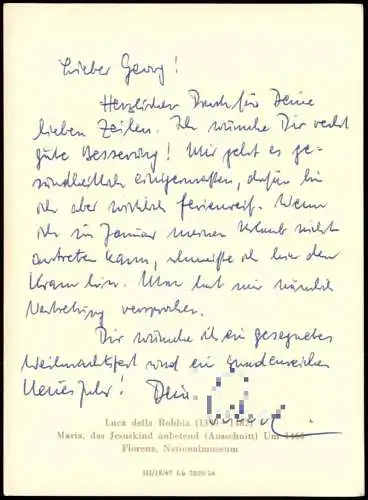 Lieber Georg!
Herzlichen Dank für Deine
lieben Zeilen. Ich wünsche Dir recht
gute Besserung! Mir geht es ge-
sundheitlich einigermaßen, dafür bin
ich aber wirklich ferienreif. Wenn
ich im Januar meinen Urlaub nicht
antreten kann, schmeiße ich hier den
Kram hin. Man hat mir nämlich
Vertretung versprochen.
Dir wünsche ich ein gesegnetes
Weihnachtsfest und ein gnadenreiches
Neues Jahr! Dein
Luca della Robbia (1399–1482)
Maria, das Jesuskind anbetend (Ausschnitt) Um 1460
Florenz, Nationalmuseum